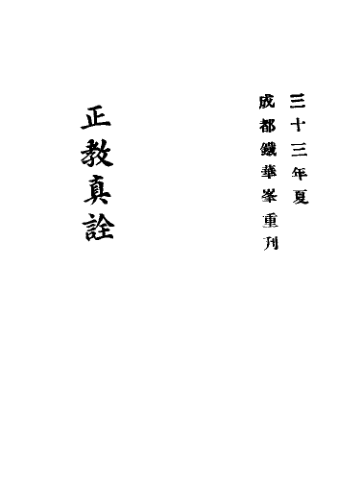 三十三年夏
成都鐵華峯重刊
正教真詮